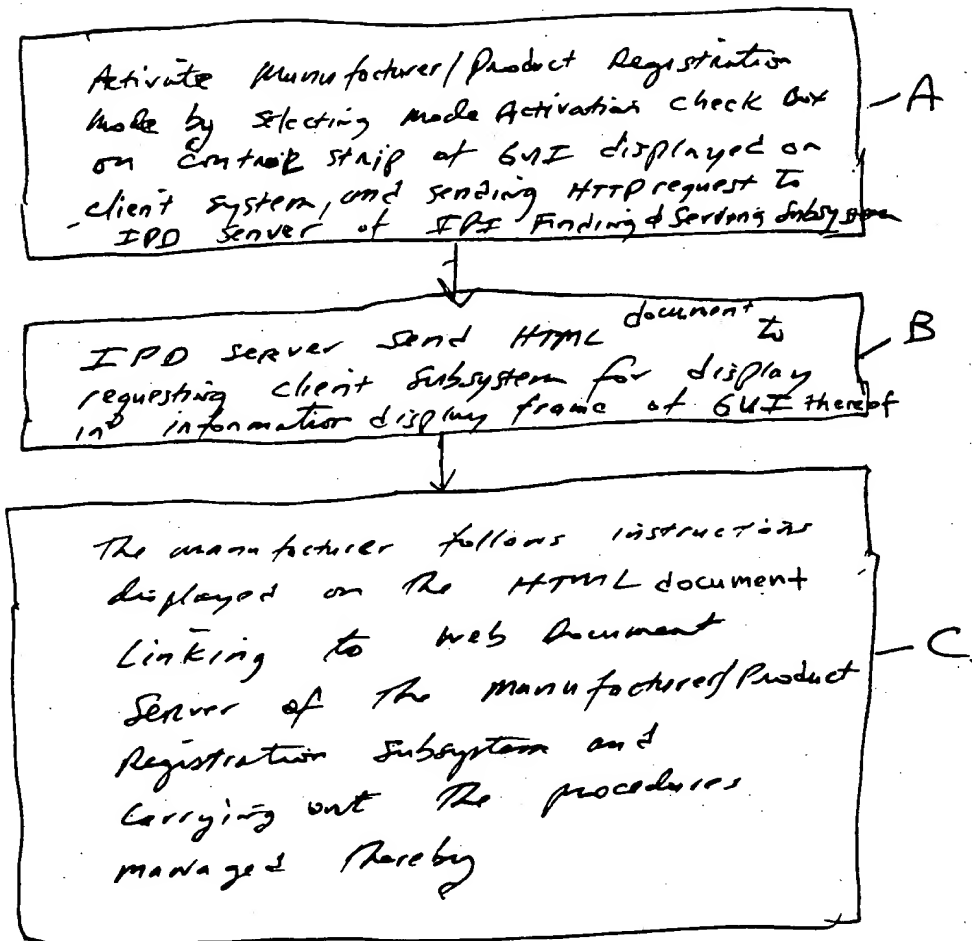 Activate Manufacturer/Product Registration
Mode by selecting Mode Activation Check Box
on Control strip of GUI displayed on
client system, and sending HTTP request to
IPD server of IPI Finding & Serving Subsystem
A
IPD server send HTML document to
requesting client subsystem for display
into information display frame of GUI thereof
B
The manufacturer follows instructions
displayed on the HTML document
Linking to Web Document
Server of the Manufacturer/Product
Registration Subsystem and
Carrying out the procedures
managed thereby
C